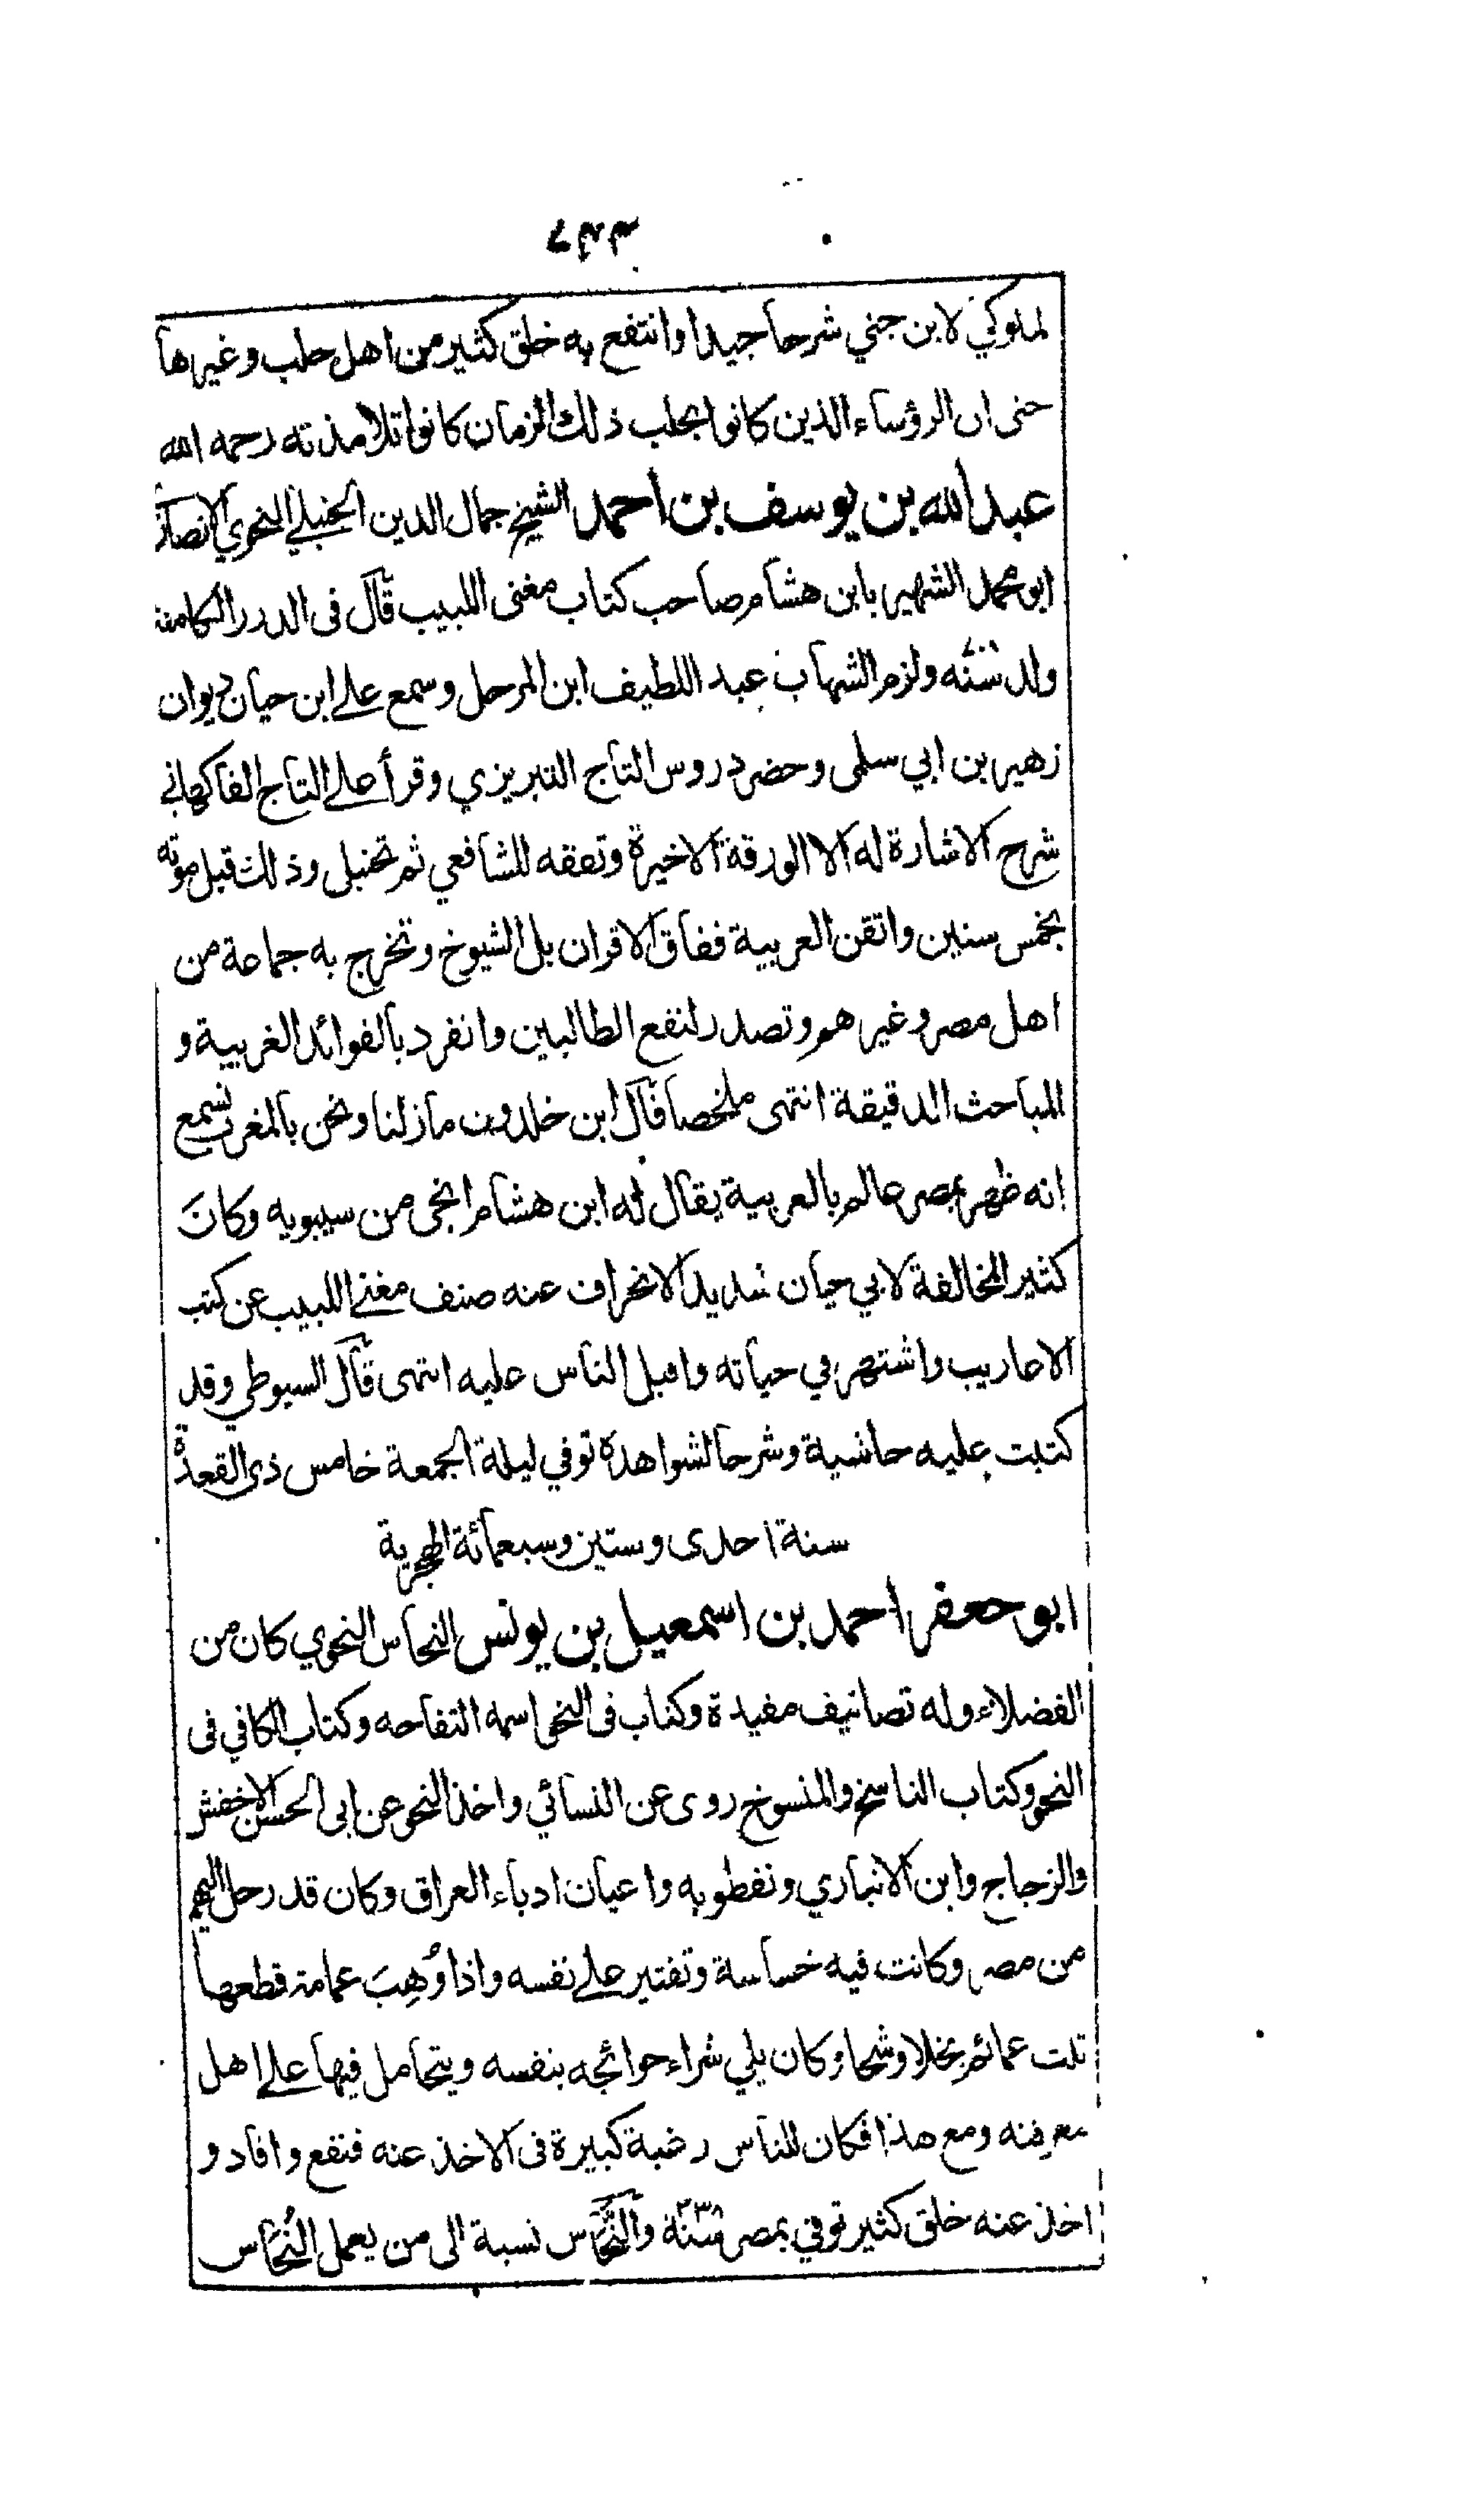 لملوكي لابن جني شرحا جيدا وانتفع به خلق كثير من اهل حلب وغيرها
حتى ان الرؤساء الذين كانوا بحلب ذلك الزمان كانوا تلامذته رحمه الله
عبد الله بن يوسف بن احمد الشيخ جمال الدين الحنبلي النحوي الانصاري
ابو محمد الشهير بابن هشام صاحب كتاب مغنى اللبيب قال فى الدرر الكامنة
ولد سنة ولزم الشهاب عبد اللطيف ابن المرحل وسمع على ابن حيان ديوان
زهير بن ابي سلمى وحضر دروس التاج التبريزي وقرأ على التاج الفاكهاني
شرح الاشارة له الا الورقة الاخيرة وتفقه للشافعي ثم تحنبل وذلك قبل موته
بخمس سنين واتقن العربية ففاق الاقران بل الشيوخ وتخرج به جماعة من
اهل مصر وغيرهم وتصدر لنفع الطالبين وانفرد بالفوائد الغريبة و
المباحث الدقيقة انتهى ملخصا قال ابن خلدون مازلنا ونحن بالمغرب نسمع
انه ظهر بمصر عالم بالعربية يقال له ابن هشام انحى من سيبويه وكانَ
كثير المخالفة لابي حيان شديد الانحراف عنه صنف مغني اللبيب عن كتب
الاعاريب واشتهر في حياته واقبل الناس عليه انتهى قال السيوطي وقد
كتبت عليه حاشية وشرحا لشواهده توفي ليلة الجمعة خامس ذى القعدة
سنة احدى وستين وسبعمائة الهجرية
ابو جعفر احمد بن اسمعيل بن يونس النحاس النحوي كان من
الفضلاء وله تصانيف مفيدة وكتاب فى النحو اسمه التفاحه وكتاب الكافي فى
النحو وكتاب الناسخ والمنسوخ روى عن النسائي واخذ النحو عن ابى الحسن الاخفش
والزجاج وابن الانباري ونفطويه واعيان ادباء العراق وكان قد رحل اليهم
من مصر وكانت فيه خساسة وتقتير على نفسه واذا وُهِبَ عمامة قطعها
ثلث عمائم بخلا وشحا وكان يلي شراء حوائجه بنفسه ويتحامل فيها على اهل
معرفته ومع هذا فكان للناس رغبة كبيرة فى الاخذ عنه فنفع وافاد و
اخذ عنه خلق كثير توفي بمصر سنة ٣٣٨ والنَّحَّاس نسبة الى من يعمل النُحَاس